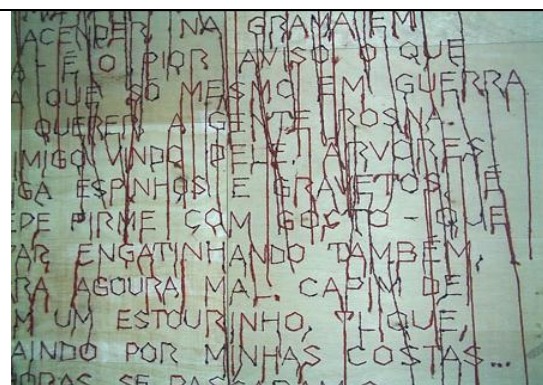 ACENDER NA GRAMA EM
- É O PIOR AVISO O QUE
A QUE SÓ MESMO EM GUERRA
QUERER A GENTE ROSNA.
MIGO VINDO DELE, ÁRVORES
GA ESPINHOS E GRAVETOS É
EDE FIRME COM GOSTO - QUE
AR ENGATINHANDO TAMBÉM,
RA AGOURA MAL CAPIM DE
M UM ESTOURINHO, TIQUE,
AINDO POR MINHAS COSTAS...
ORAS SE PAS